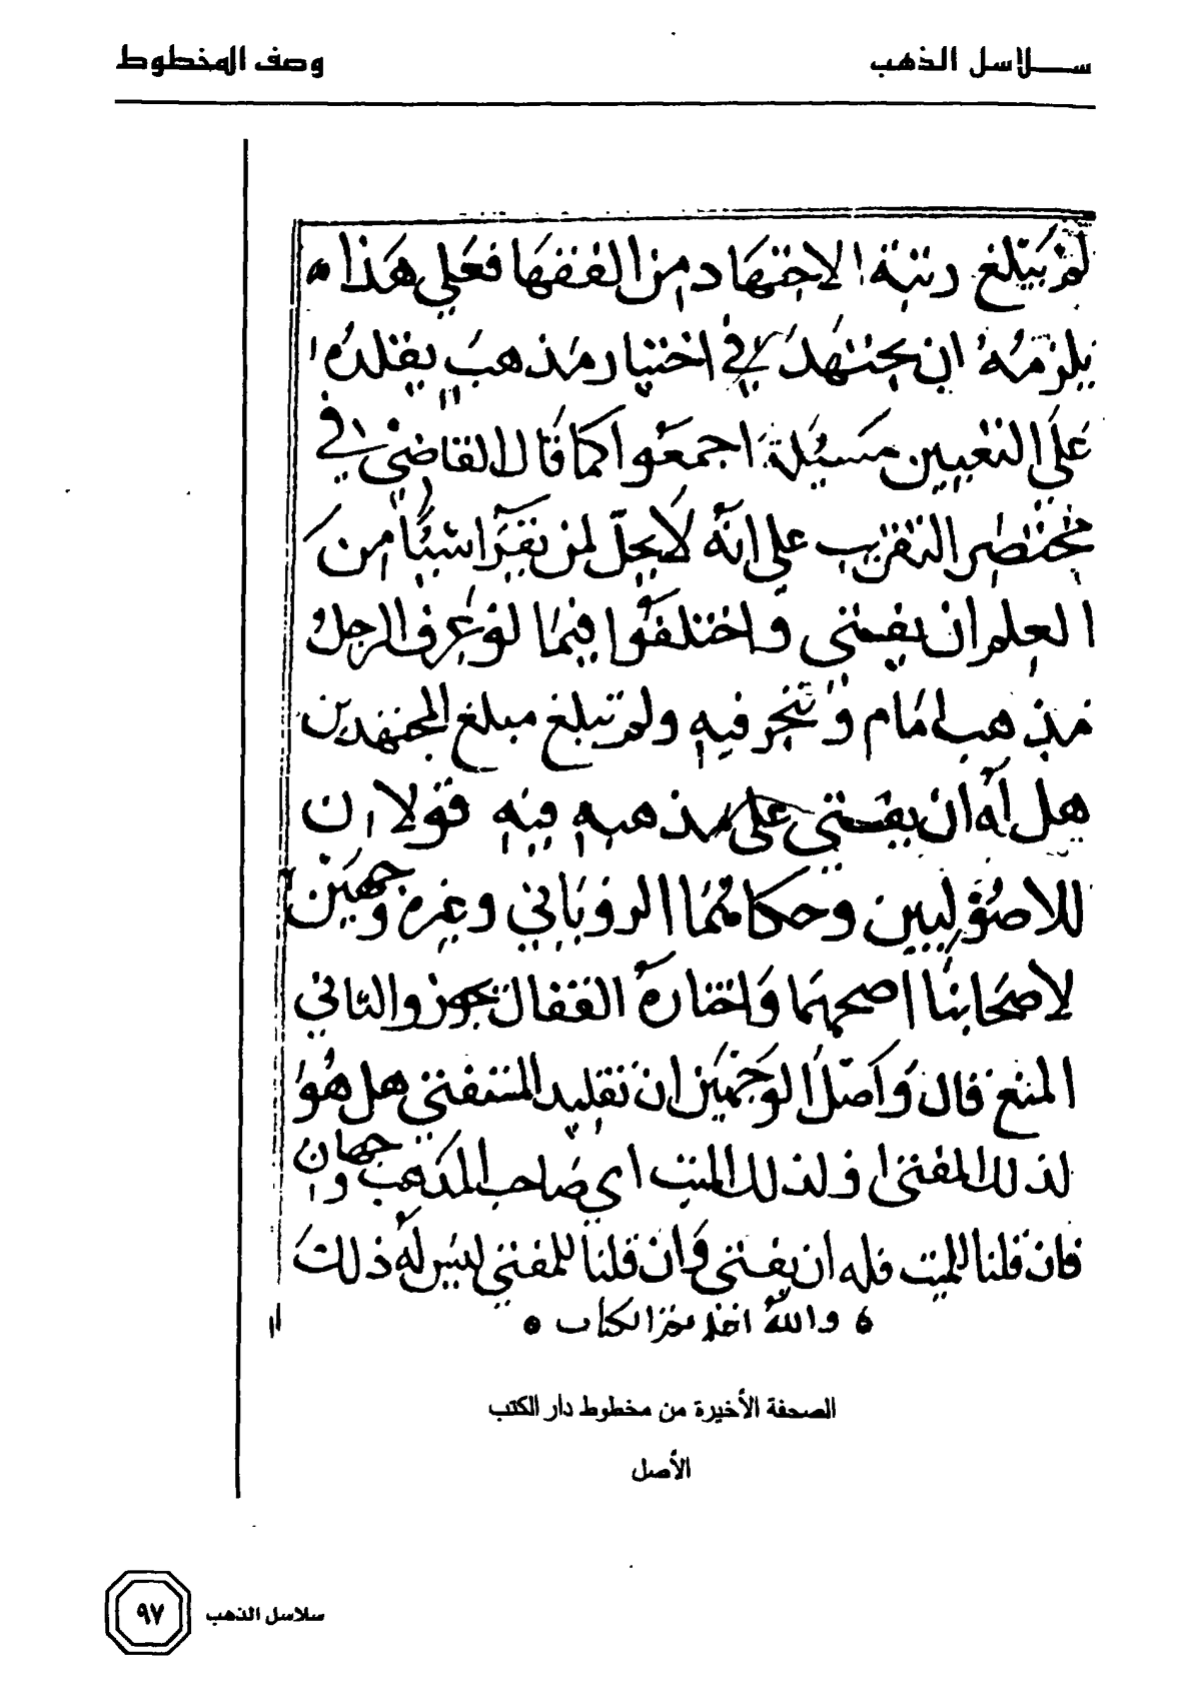 سلاسل الذهب
وصف المخطوط
لم يبلغ رتبة الاجتهاد من الفقها فعلي هذا
يلزمه ان يجتهد في اختيار مذهب يقلده
علي التعيين مسئلة اجمعوا كما قال القاضي في
مختصر التقريب علي انه لا يحل لمن تقرا شيئا من
العلم ان يفتي واختلفوا فيما لو عرف الرجل
مذهب امام وتبحر فيه ولم تبلغ مبلغ المجتهدين
هل له ان يفتي علي مذهبه فيه قولان
للاصوليين وحكاهما الروياني وغيره وجهين
لاصحابنا اصحهما واختاره القفال يجوز والثاني
المنع قال واصل الوجهين ان تقليد المستفتي هل هو
لذلك المفتي او لذلك الميت اي صاحب المذهب وجهان
فان قلنا للميت فله ان يفتي وان قلنا للمفتي ليس له ذلك
والله الكتاب
الصحفة الأخيرة من مخطوط دار الكتب
الأصل
سلاسل الذهب
٩٧